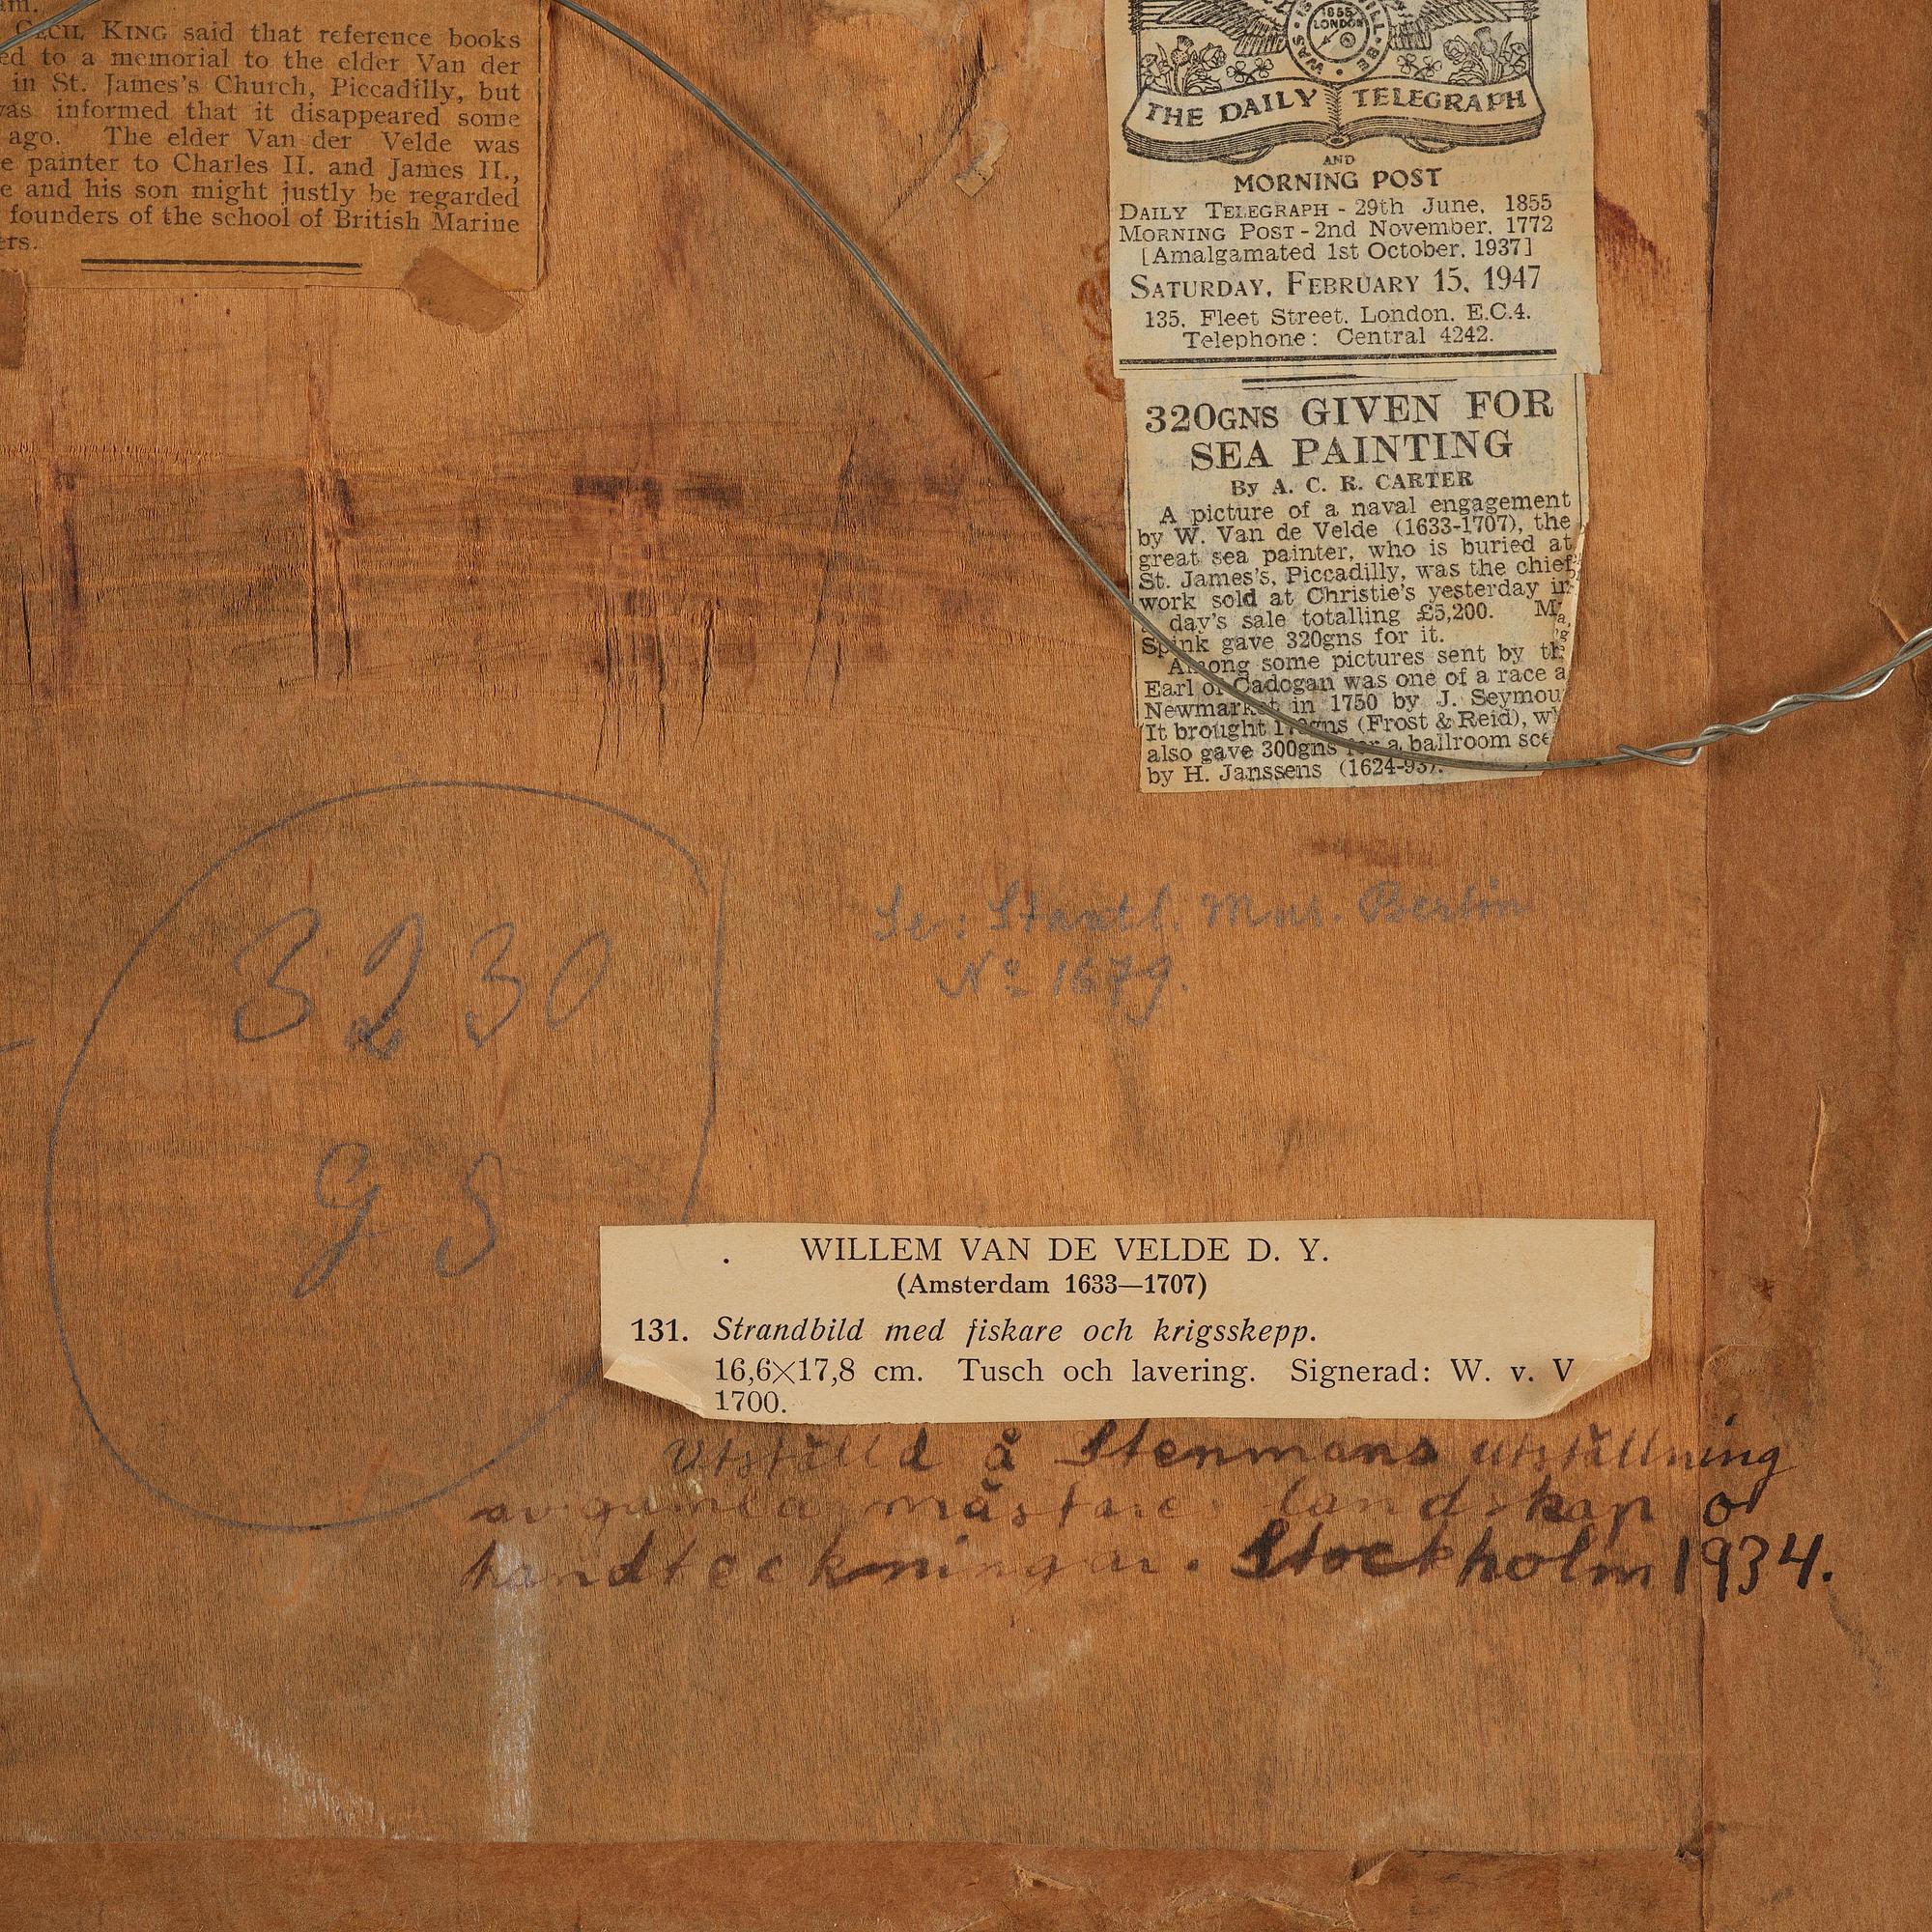 CECIL KING said that reference books
ed to a memorial to the elder Van der
in St. James's Church, Piccadilly, but
was informed that it disappeared some
ago. The elder Van der Velde was
e painter to Charles II. and James II.,
e and his son might justly be regarded
founders of the school of British Marine
ers.
1855
LONDON
WAS · IS · WILL · BE
THE DAILY TELEGRAPH
AND
MORNING POST
DAILY TELEGRAPH - 29th June, 1855
MORNING POST - 2nd November, 1772
[Amalgamated 1st October, 1937]
SATURDAY, FEBRUARY 15, 1947
135, Fleet Street, London, E.C.4.
Telephone: Central 4242.
320GNS GIVEN FOR
SEA PAINTING
By A. C. R. CARTER
A picture of a naval engagement
by W. Van de Velde (1633-1707), the
great sea painter, who is buried at
St. James's, Piccadilly, was the chief
work sold at Christie's yesterday in
day's sale totalling £5,200.
Spink gave 320gns for it.
Among some pictures sent by the
Earl of Cadogan was one of a race a
Newmarket in 1750 by J. Seymou
It brought gns (Frost & Reid), w
also gave 300gns for a ballroom sce
by H. Janssens (1624-93).
Se: Staatl. Mus. Berlin
No 1679.
3230
95
WILLEM VAN DE VELDE D. Y.
(Amsterdam 1633—1707)
131. Strandbild med fiskare och krigsskepp.
16,6×17,8 cm. Tusch och lavering. Signerad: W. v. V
1700.
Utställd å Stenmans utställning
av gamla mästare landskap o
handteckningar. Stockholm 1934.